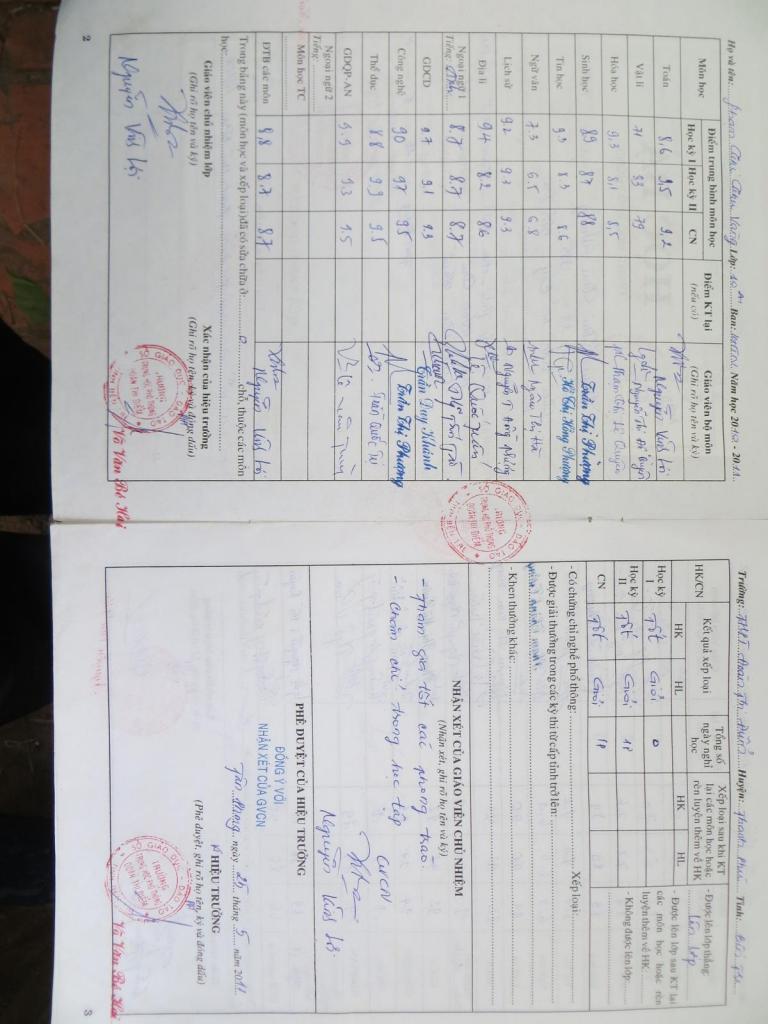 Họ và tên: Phạm Vang Lớp: 10 A1 Ban: Năm học 2010 - 2011
Môn học
Điểm trung bình môn học
Điểm KT lại
(nếu có)
Giáo viên bộ môn
(Ghi rõ họ tên và ký)
Học kỳ I Học kỳ II CN
Toán 8,6 9,5 9,2 Nguyễn Vĩnh Lộ
Vật lí 71 83 79 Nguyễn Thị
Hóa học 9,3 8,1 8,5 Phạm Thị Lệ Quyên
Sinh học 89 87 88 Trần Thị Phượng
Tin học 9.3 8.3 8 6 Hồ Thị Hồng Phượng
Ngữ văn 7.3 6.5 6.8 Ngô Thị Hà
Lịch sử 9.2 9.3 9.3 Nguyễn T
Địa lí 9.4 8.2 8.6
Ngoại ngữ 1
Tiếng: Anh 8.7 8.7 8.7
GDCD 9.7 9.1 9.3 Trần Duy Khánh
Công nghệ 90 97 95 Trần Thị Phượng
Thể dục 8.8 9.9 9.5 Trần Quốc
GDQP-AN 9.3
Ngoại ngữ 2
Tiếng:
Môn học TC
ĐTB các môn 8,8 8.7 8,7 Nguyễn Vĩnh Lộ
Trong bảng này (môn học và xếp loại) đã có sửa chữa ở: 0 chỗ, thuộc các môn
học:
Giáo viên chủ nhiệm lớp
(Ghi rõ họ tên và ký)
Nguyễn Vĩnh Lộ
Xác nhận của hiệu trưởng
(Ghi rõ họ tên, ký và đóng dấu)
SỞ GIÁO DỤC - ĐÀO TẠO
TRƯỜNG
TRUNG HỌC PHỔ THÔNG
ĐOÀN THỊ ĐIỂM
TỈNH BẾN TRE
Võ Văn Bé Hai
2
Trường: THPT Đoàn Thị Điểm Huyện: Thạnh Phú Tỉnh: Bến Tre
HK/CN
Kết quả xếp loại
HK HL
Tổng số ngày nghỉ học
Xếp loại sau khi KT lại các môn học hoặc rèn luyện thêm về HK
HK HL
Học kỳ I Tốt Giỏi 0
Học kỳ II Tốt Giỏi 1P
CN Tốt Giỏi 1P
- Được lên lớp thẳng:
Lên lớp
- Được lên lớp sau KT lại các môn học hoặc rèn luyện thêm về HK:
- Không được lên lớp:
- Có chứng chỉ nghề phổ thông: Xếp loại:
- Được giải thưởng trong các kỳ thi từ cấp tỉnh trở lên:
- Khen thưởng khác:
NHẬN XÉT CỦA GIÁO VIÊN CHỦ NHIỆM
(Nhận xét, ghi rõ họ tên và ký)
- Tham gia tốt các phong trào.
- Chăm chỉ trong học tập
GVCN
Nguyễn Vĩnh Lộ
PHÊ DUYỆT CỦA HIỆU TRƯỞNG
ĐỒNG Ý VỚI
NHẬN XÉT CỦA GVCN
Tân Phong ngày 25 tháng 5 năm 2011
HIỆU TRƯỞNG
(Phê duyệt, ghi rõ họ tên, ký và đóng dấu)
SỞ GIÁO DỤC - ĐÀO TẠO
TRƯỜNG
TRUNG HỌC PHỔ THÔNG
ĐOÀN THỊ ĐIỂM
Võ Văn Bé Hai
3